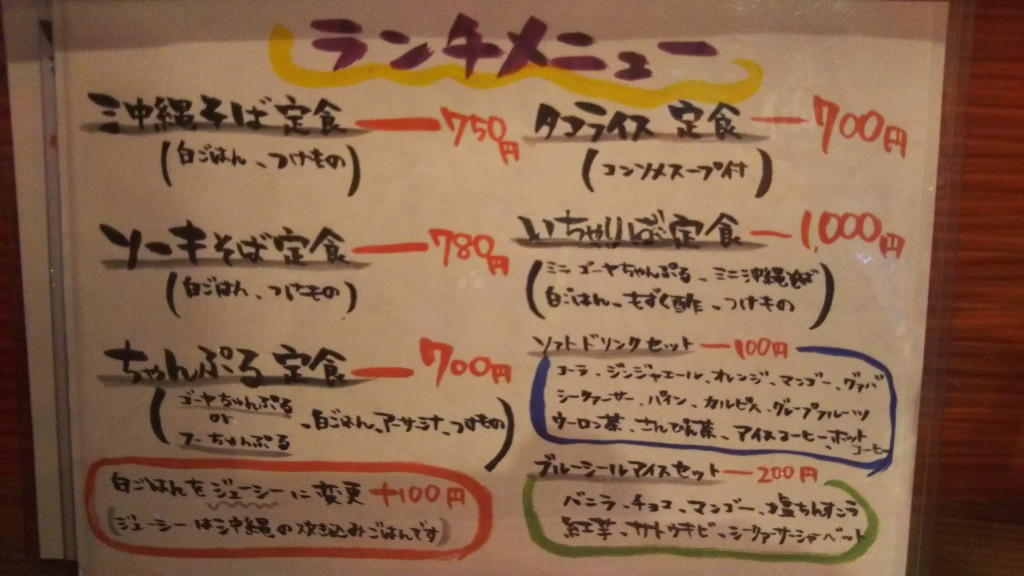 ランチメニュー
沖縄そば定食 — 750円
(白ごはん、つけもの)
ソーキそば定食 — 780円
(白ごはん、つけもの)
ちゃんぷる定食 — 700円
(ゴーヤちゃんぷる
or
フーちゃんぷる
、白ごはん、アーサー汁、つけもの)
白ごはんをジューシーに変更 +100円
(ジューシーは沖縄の炊き込みごはんです)
タコライス定食 — 700円
(コンソメスープ付)
いちゃりば定食 — 1,000円
(ミニゴーヤちゃんぷる、ミニ沖縄そば
白ごはん、もずく酢、つけもの)
ソフトドリンクセット — 100円
コーラ、ジンジャエール、オレンジ、マンゴー、グァバ
シークァーサー、パイン、カルピス、グレープフルーツ
ウーロン茶、さんぴん茶、アイスコーヒー、ホットコーヒー
ブルーシールアイスセット — 200円
バニラ、チョコ、マンゴー、塩ちんすこう
紅芋、サトウキビ、シークァーサーシャーベット